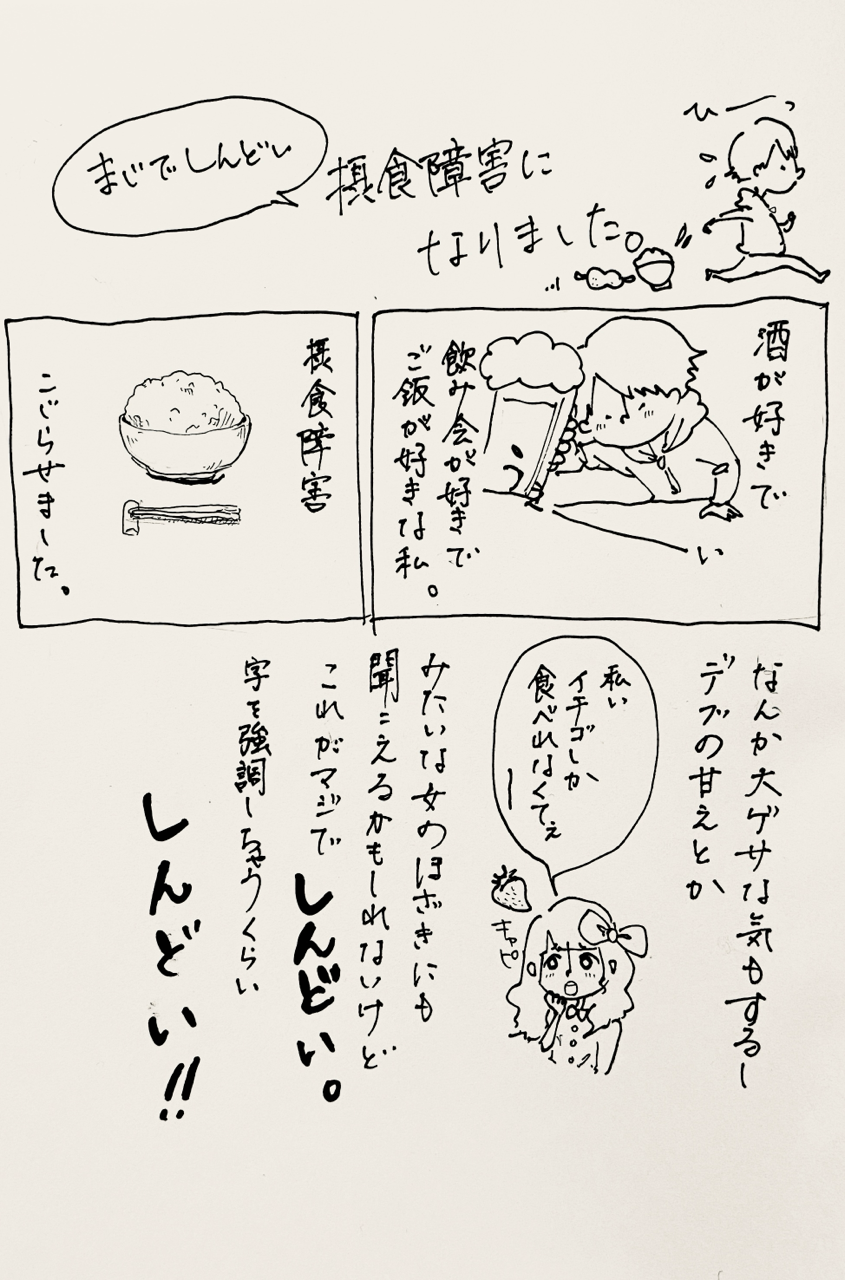 まじでしんどい
摂食障害に
なりました。
ひーっ
酒が好きで
うぇ
い
飲み会が好きで
ご飯が好きな私。
摂食障害
こじらせました。
なんか大ゲサな気もするし
デブの甘えとか
私ぃ
イチゴしか
食べれなくてぇ
ー
キャピ
みたいな女のほざきにも
聞こえるかもしれないけど
これがマジでしんどい。
字を強調しちゃうくらい
しんどい!!